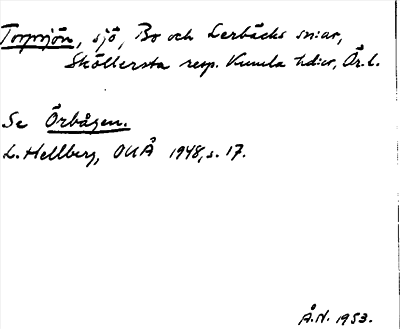 Torpsjön, sjö, Bo och Lerbäcks snar,
Sköllersta resp. Kumla hdr, Ör. l.
Se Örbågen.
L. Hellberg, OUÅ 1948, s. 17.
Å.N. 1953.